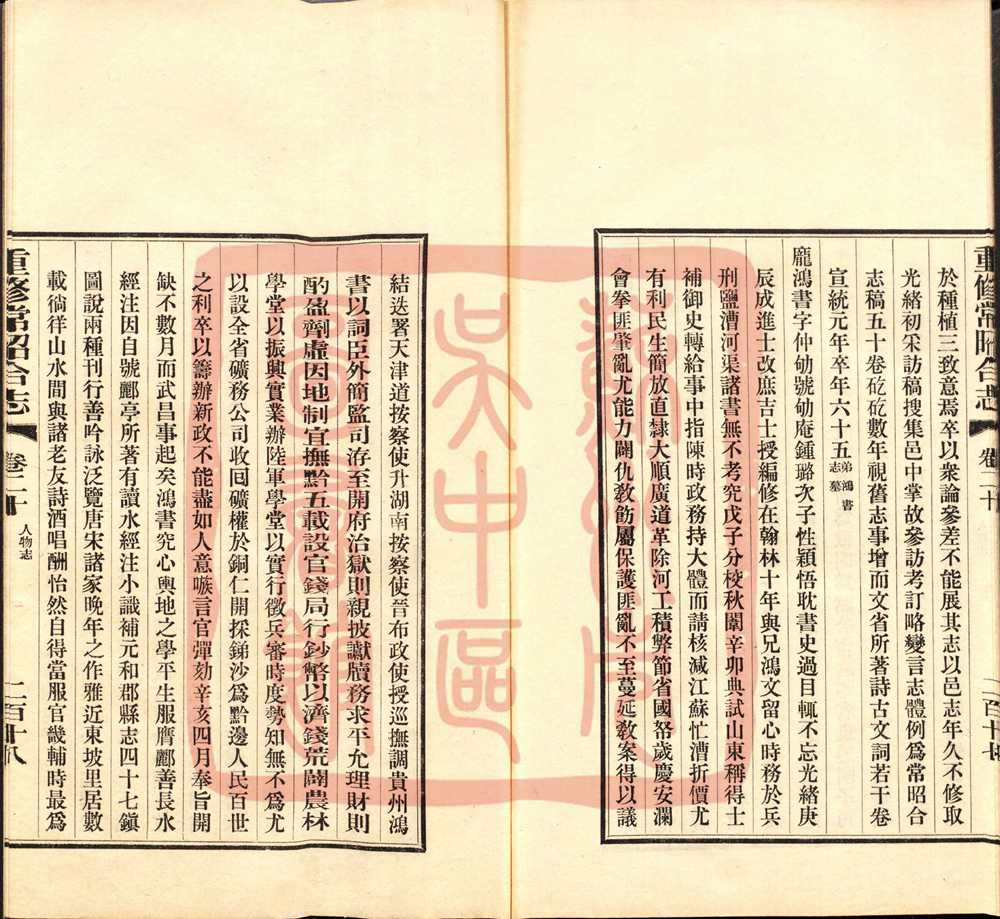 重修常昭合志 卷二十
於種植三致意焉卒以衆論參差不能展其志以邑志年久不修取
光緒初采訪稿搜集邑中掌故參訪考訂略變言志體例爲常昭合
志稿五十卷矻矻數年視舊志事增而文省所著詩古文詞若干卷
宣統元年卒年六十五弟鴻書志墓
龐鴻書字仲劬號劬庵鍾璐次子性穎悟耽書史過目輒不忘光緒庚
辰成進士改庶吉士授編修在翰林十年與兄鴻文留心時務於兵
刑鹽漕河渠諸書無不考究戊子分校秋闈辛卯典試山東稱得士
補御史轉給事中指陳時政務持大體而請核減江蘇忙漕折價尤
有利民生簡放直隸大順廣道革除河工積弊節省國帑歲慶安瀾
會拳匪肇亂尤能力闢仇敎飭屬保護匪亂不至蔓延敎案得以議
結迭署天津道按察使升湖南按察使晉布政使授巡撫調貴州鴻
書以詞臣外簡監司洊至開府治獄則親披讞牘務求平允理財則
酌盈劑虛因地制宜撫黔五載設官錢局行鈔幣以濟錢荒闢農林
學堂以振興實業辦陸軍學堂以實行徵兵審時度勢知無不爲尤
以設全省礦務公司收回礦權於銅仁開採銻沙爲黔邊人民百世
之利卒以籌辦新政不能盡如人意嗾言官彈劾辛亥四月奉旨開
缺不數月而武昌事起矣鴻書究心輿地之學平生服膺酈善長水
經注因自號酈亭所著有讀水經注小識補元和郡縣志四十七鎭
圖說兩種刊行善吟詠泛覽唐宋諸家晚年之作雅近東坡里居數
載徜徉山水間與諸老友詩酒唱酬怡然自得當服官畿輔時最爲
重修常昭合志 卷二十 人物志 二百十八
吳中區